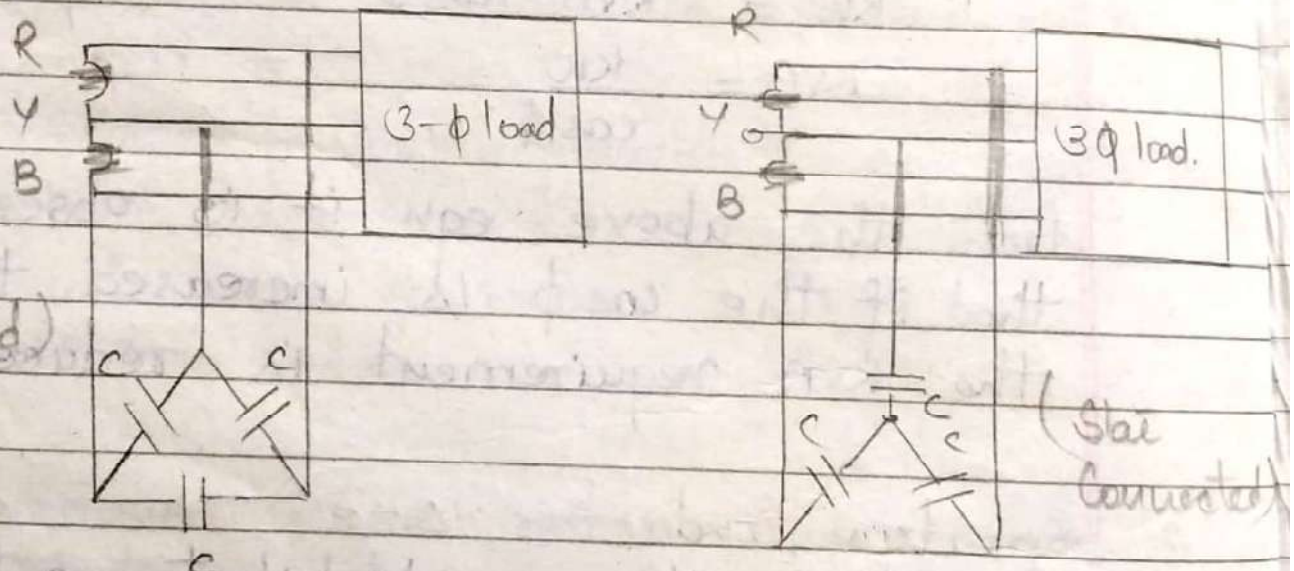 R
Y
B
3-ϕ load
C
C
C
d)
R
Y
B
3ϕ load.
C
C
C
(Star
Connected)